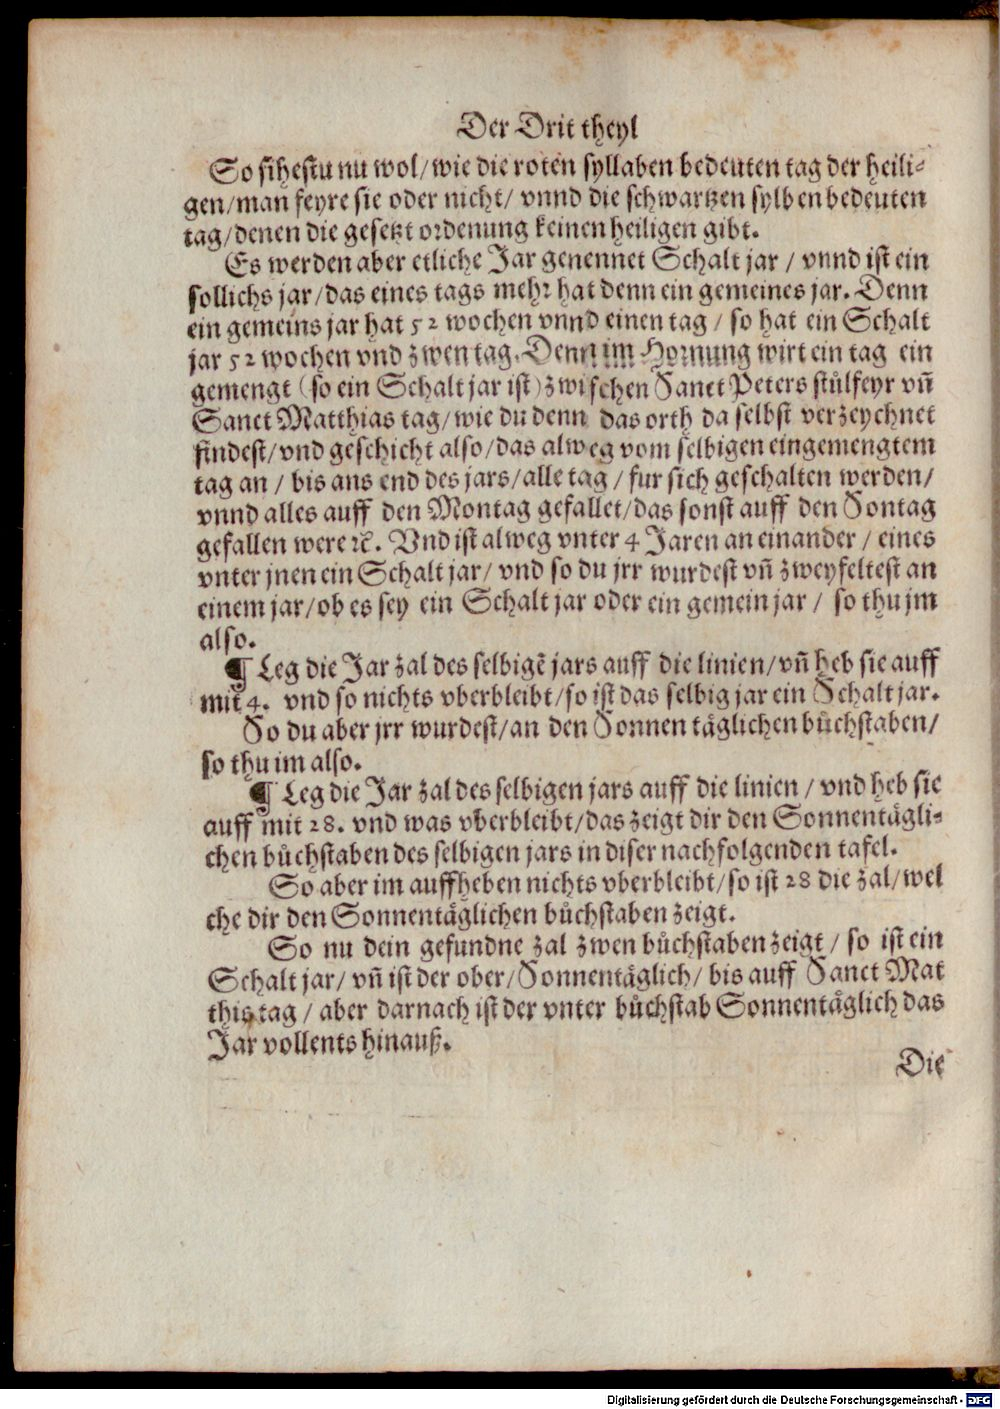 Der Drit theyl
So sihestu nu wol/wie die roten syllaben bedeuten tag der heili-
gen/man feyre sie oder nicht/ vnnd die schwartzen sylben bedeuten
tag/denen die gesetzt ordenung keinen heiligen gibt.
Es werden aber etliche Jar genennet Schalt jar / vnnd ist ein
sollichs jar/das eines tags mehr hat denn ein gemeines jar. Denn
ein gemeins jar hat 52 wochen vnnd einen tag / so hat ein Schalt
jar 52 wochen vnd zwen tag. Denn im Hornung wirt ein tag ein
gemengt (so ein Schalt jar ist) zwischen Sanct Peters stůlfeyr vñ
Sanct Matthias tag/wie du denn das orth da selbst verzeychnet
findest/vnd geschicht also/das alweg vom selbigen eingemengtem
tag an / bis ans end des jars/alle tag / fur sich geschalten werden/
vnnd alles auff den Montag gefallet/das sonst auff den Sontag
gefallen were ꝛc. Vnd ist alweg vnter 4 Jaren an einander / eines
vnter jnen ein Schalt jar/ vnd so du jrr wurdest vñ zweyfeltest an
einem jar/ob es sey ein Schalt jar oder ein gemein jar / so thu jm
also.
¶ Leg die Jar zal des selbigẽ jars auff die linien/vñ heb sie auff
mit 4. vnd so nichts vberbleibt/so ist das selbig jar ein Schalt jar.
So du aber jrr wurdest/an den Sonnen täglichen bůchstaben/
so thu im also.
¶ Leg die Jar zal des selbigen jars auff die linien / vnd heb sie
auff mit 28. vnd was vberbleibt/das zeigt dir den Sonnentägli-
chen bůchstaben des selbigen jars in diser nachfolgenden tafel.
So aber im auffheben nichts vberbleibt/so ist 28 die zal/wel
che dir den Sonnentäglichen bůchstaben zeigt.
So nu dein gefundne zal zwen bůchstaben zeigt / so ist ein
Schalt jar/ vñ ist der ober/Sonnentäglich/ bis auff Sanct Mat
this tag / aber darnach ist der vnter bůchstab Sonnentäglich das
Jar vollents hinauß.
Die
Digitalisierung gefördert durch die Deutsche Forschungsgemeinschaft - DFG